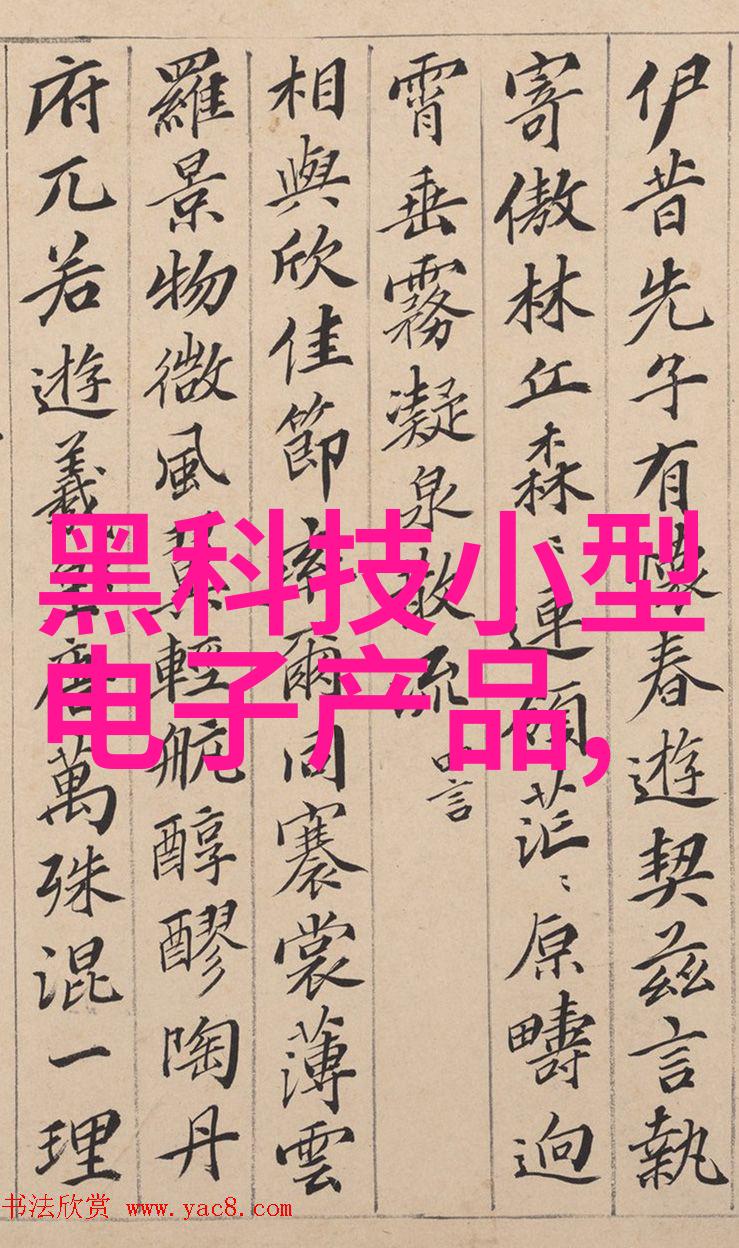 伊昔先子有懷春遊契茲言執
寄傲林丘森〻連領茫〻原疇迥
霄垂霧凝泉散流 四言
相與欣佳節率爾同褰裳薄雲
羅景物微風翼輕航醇醪陶丹
府兀若遊羲唐萬殊混一理
黑科技小型
电子产品,
书法欣赏 www.yac8.com